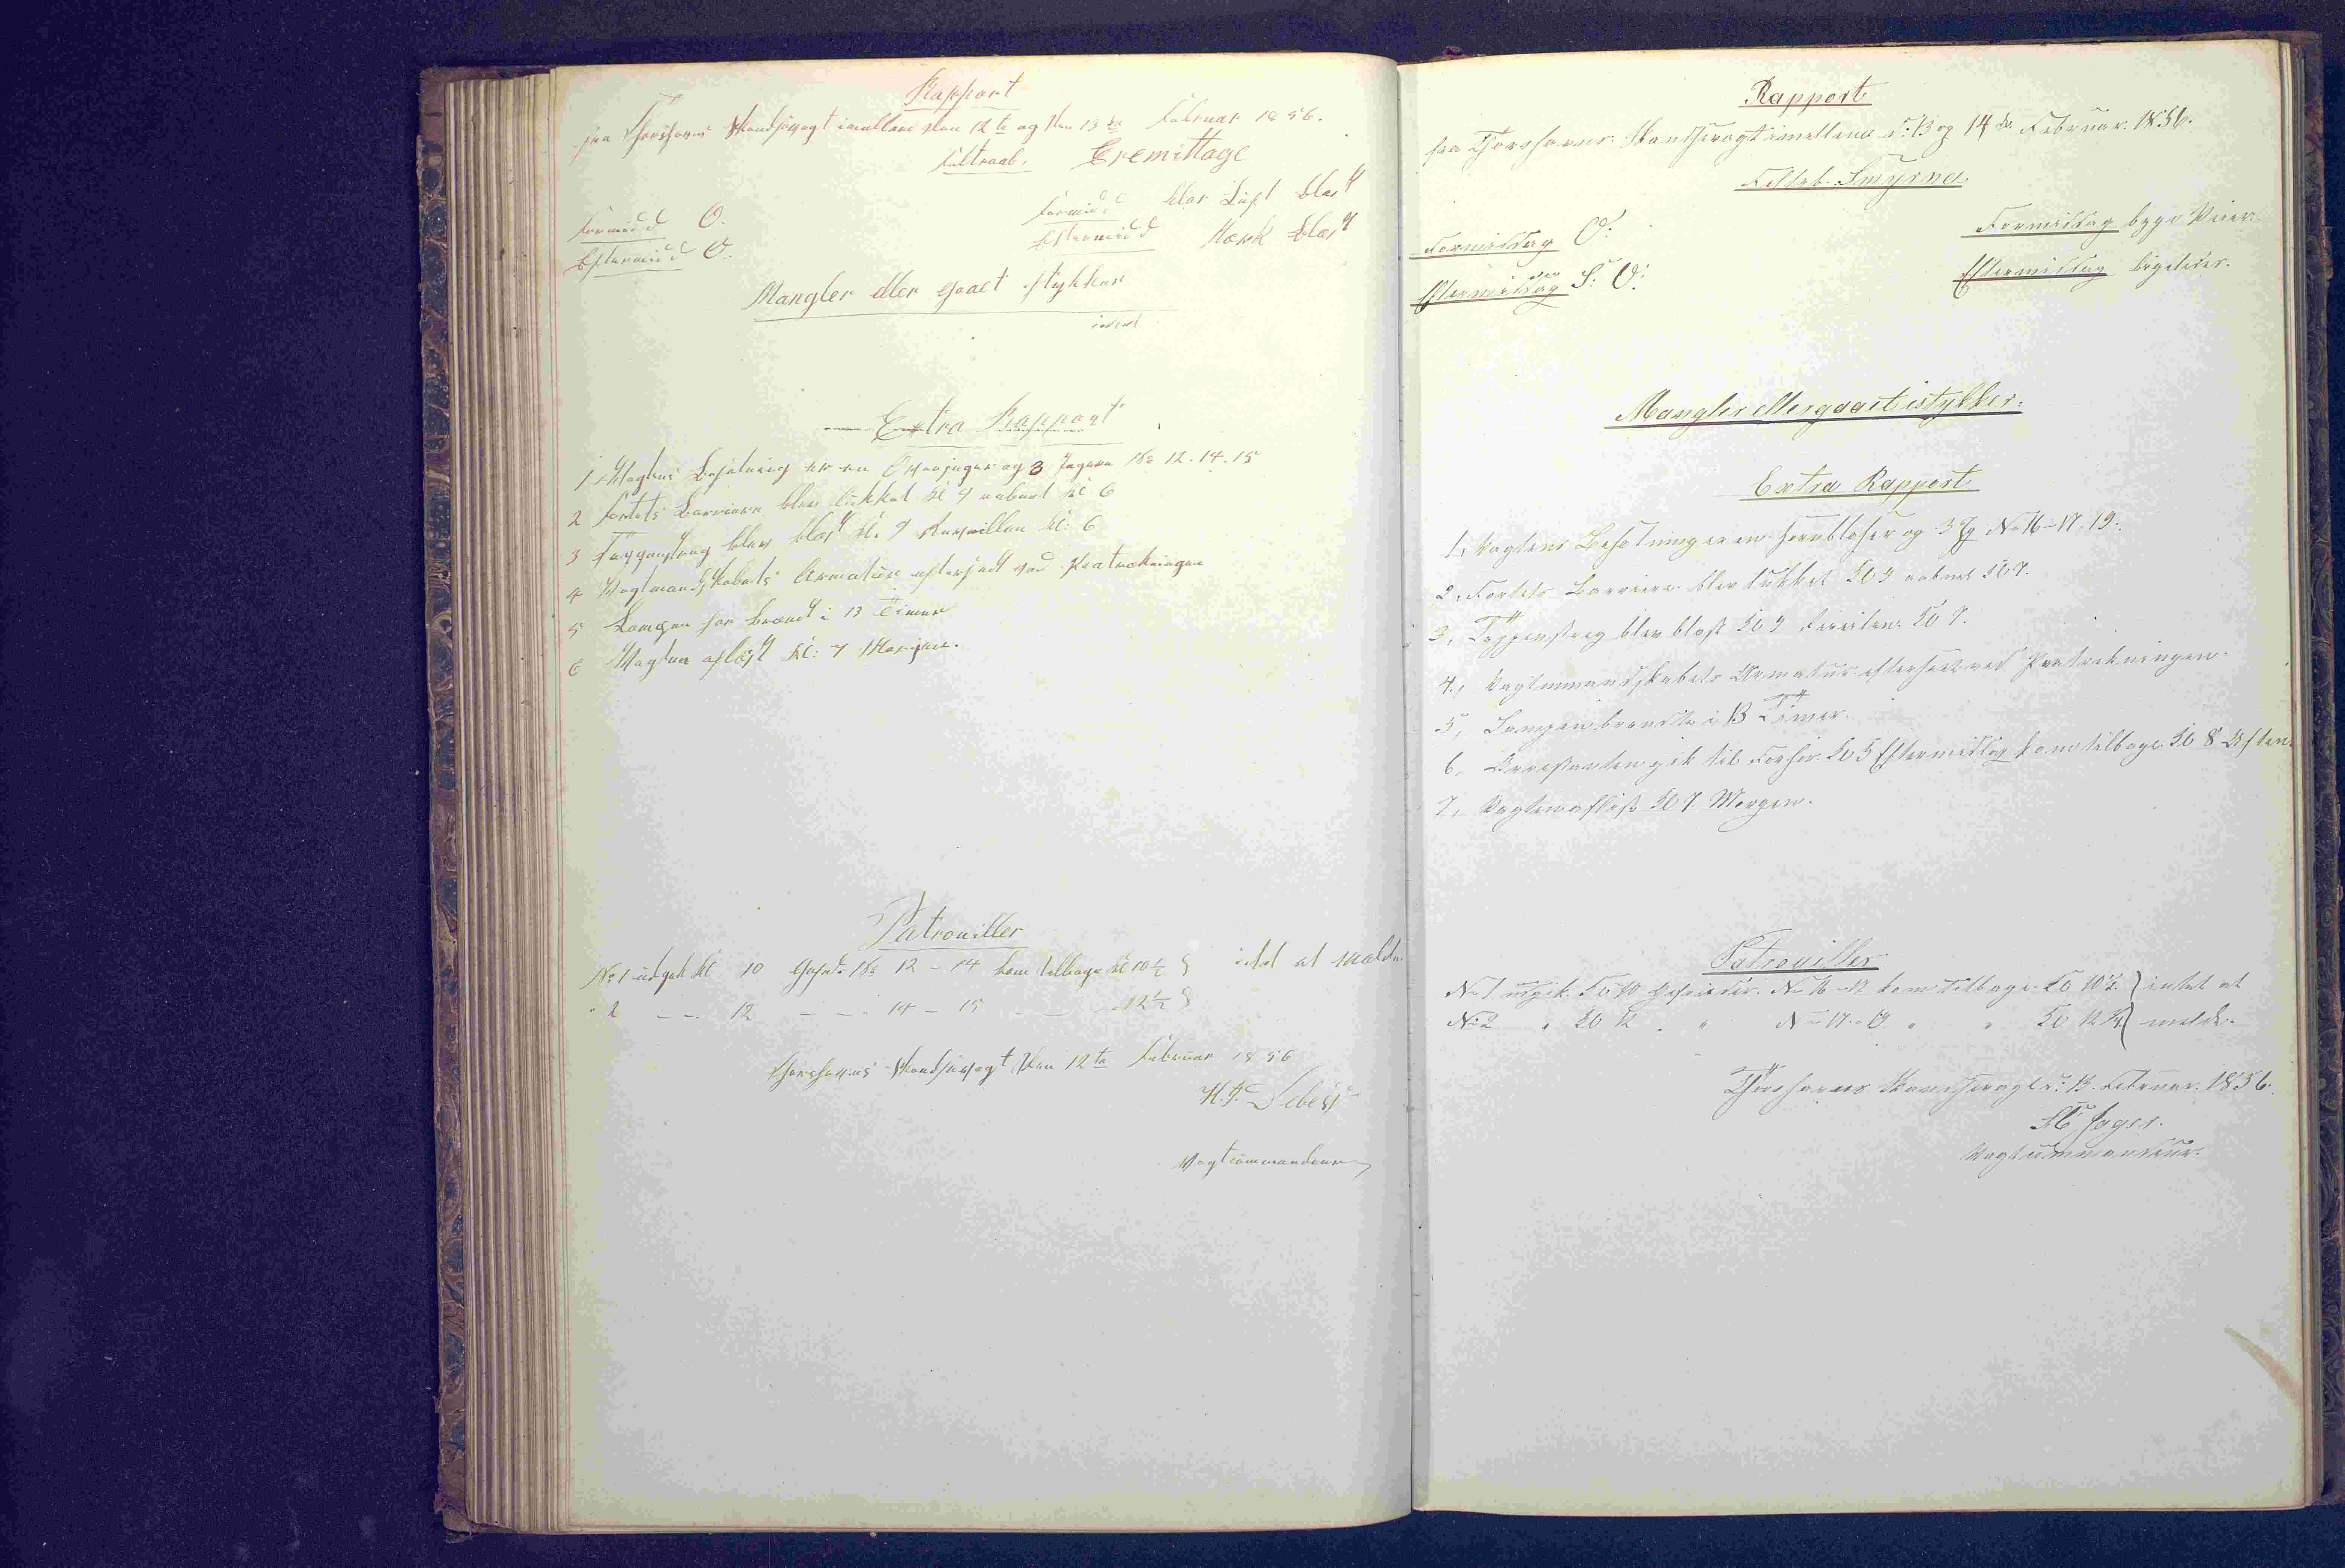 Rapport
fra Thorshavns Skandsevagt imellem den 12te og den 13de Februar 1856.
Feltraab. Eremittage
Formidd O. Formidd klar Luft blæst
Eftermidd O. Eftermidd stærk blæst
Mangler eller gaaet istykker
intet
Extra Rapport
1 Vagtens Besætning er en Overjæger og 3 Jægere No 12. 14. 15
2 Fortets Barriere blev lukket Kl 9 aabnet Kl 6
3 Tappenstreg blev blæst Kl. 9 Reveillen Kl: 6
4 Vagtmandskabets Armatur efterseet ved Paatrækningen
5 Lampen har brændt i 13 Timer
6 Vagten afløst Kl: 7 Morgen.
Patrouiller
No 1 udgik Kl 10 Gefr: No 12 - 14 kom tilbage Kl 10½ } intet at melde
" 2 - - 12 - - 14 - 15 - - 12½ }
Thorshavns Skandsevagt den 12te Februar 1856
H. P. Debes
Vagtcommandeur
Rapport
fra Thorshavns Skandsevagt imellem d: 13 og 14de Februar. 1856.
Feltrb. Smyrna.
Formiddag O: Formiddag byge Veier.
Eftermiddag S: O: Eftermiddag ligeledes.
Mangler eller gaaet istykker.
Extra Rapport
1, Vagtens Besætning er en Hornblæser og 3 Jg No 16-17.19.
2, Fortets Barriere blev lukket Kl 9 aabnet Kl 7.
3, Tappenstreg blev blæst Kl 9 Kl 7.
4, Vagtmandskabets Armatur efterseet ved Paatrækningen.
5, Lampen brændte i 13 Timer.
6, Arrestanten gik til Forhør. Kl 5 Eftermiddag kom tilbage Kl 8 Aften.
7, Vagten afløst Kl 7 Morgen.
Patrouiller
No 1 udgik Kl 10 No 16-17 kom tilbage. Kl 10½ } intet at
No 2 " Kl 12 " No 17-19 " " Kl 12½ } melde.
Thorshavns Skandsevagt d: 13. Februar. 1856.
Jager.
Vagtcommandeur.